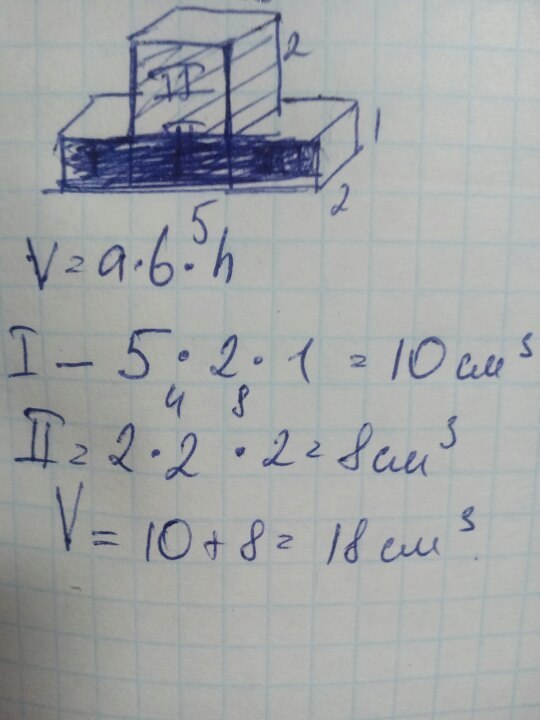 2
II
1
2
5
V = a · b · h
I — 5 · 2 · 1 = 10 см³
4 8
II = 2 · 2 · 2 = 8 см³
V = 10 + 8 = 18 см³.